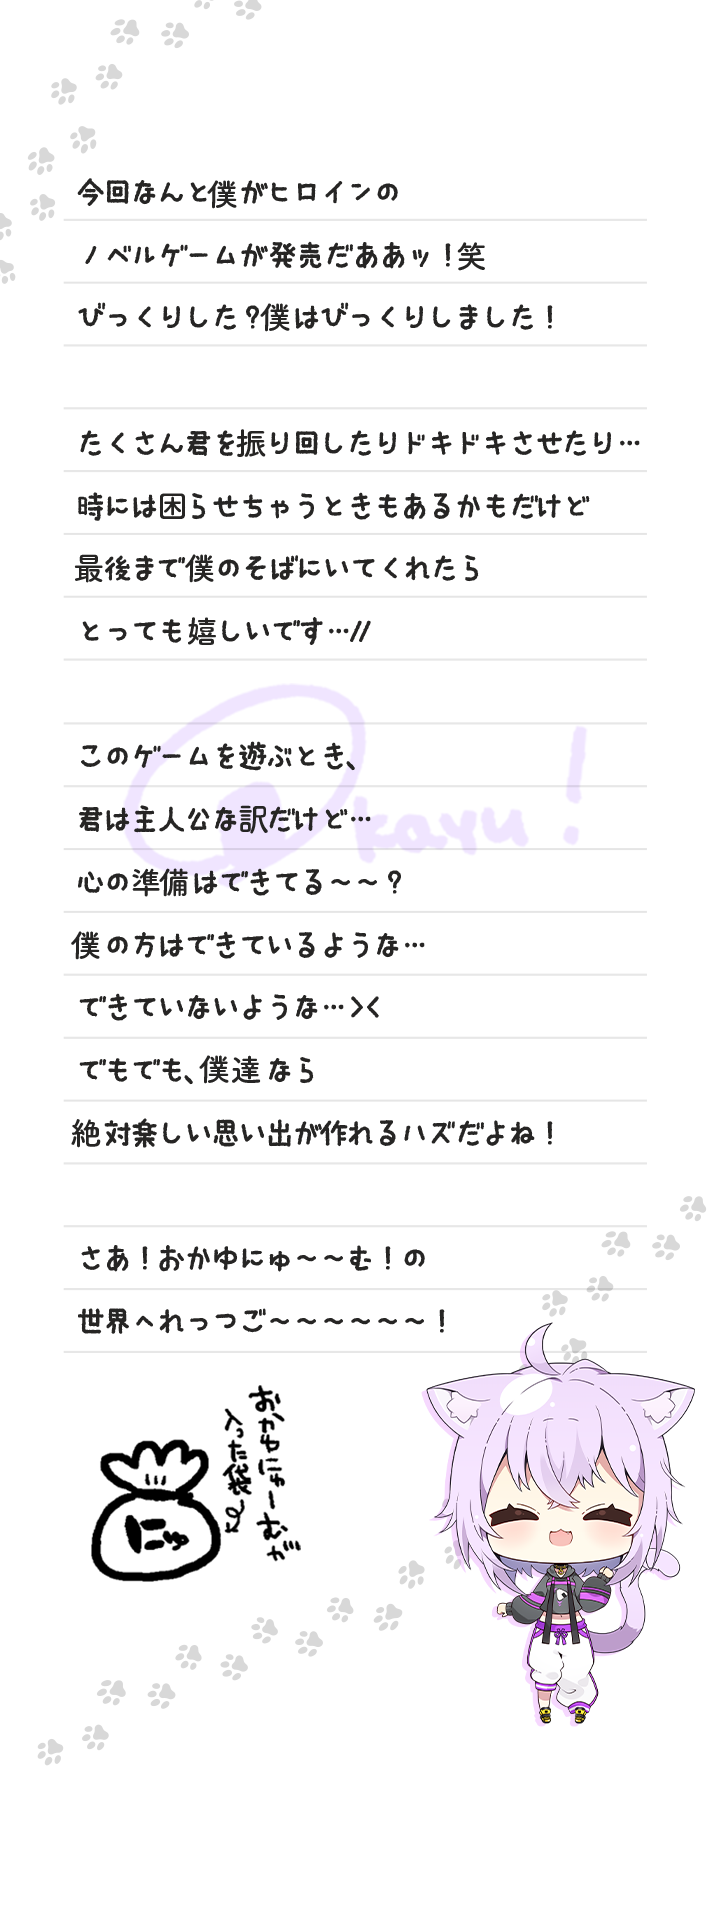 今回なんと僕がヒロインの
ノベルゲームが発売だああッ！笑
びっくりした？僕はびっくりしました！
たくさん君を振り回したりドキドキさせたり…
時には困らせちゃうときもあるかもだけど
最後まで僕のそばにいてくれたら
とっても嬉しいです…//
このゲームを遊ぶとき、
君は主人公な訳だけど…
心の準備はできてる～～？
僕の方はできているような…
できていないような…><
でもでも、僕達なら
絶対楽しい思い出が作れるハズだよね！
okayu!
さあ！おかゆにゅ～～む！の
世界へれっつご～～～～～～！
おかゆにゅーむが
入った袋
にゅ